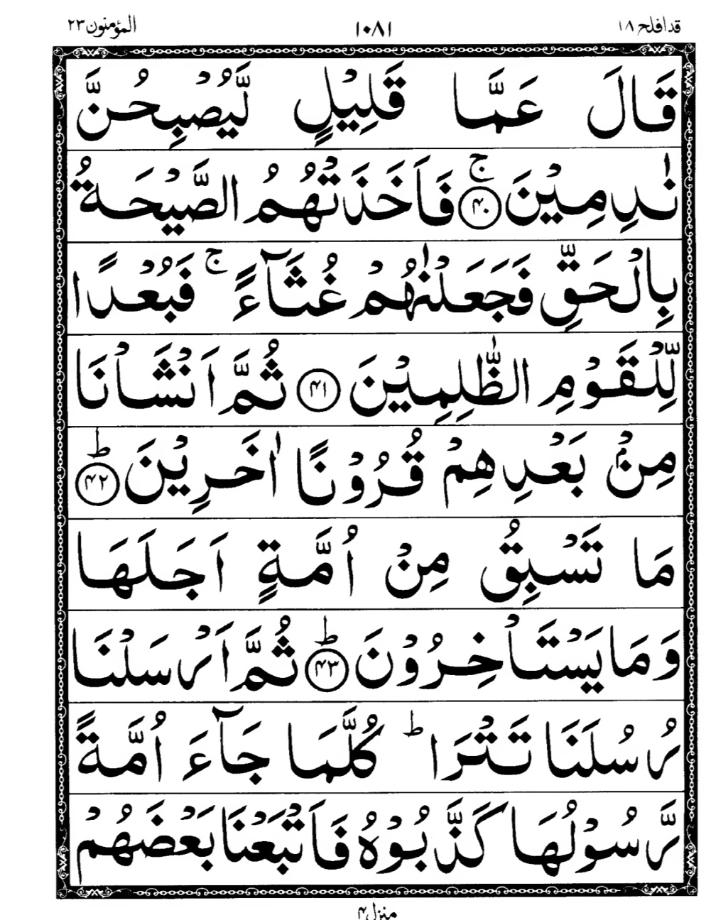 قدافلح ۱۸ ۱۰۸۱ المؤمنون ۲۳
قَالَ عَمَّا قَلِيْلٍ لَّيُصْبِحُنَّ
نٰدِمِيْنَ ۚ ﴿۴۰﴾ فَاَخَذَتْهُمُ الصَّيْحَةُ
بِالْحَقِّ فَجَعَلْنٰهُمْ غُثَآءً ۚ فَبُعْدًا
لِّلْقَوْمِ الظّٰلِمِيْنَ ﴿۴۱﴾ ثُمَّ اَنْشَاْنَا
مِنْۢ بَعْدِهِمْ قُرُوْنًا اٰخَرِيْنَ ؕ ﴿۴۲﴾
مَا تَسْبِقُ مِنْ اُمَّةٍ اَجَلَهَا
وَمَا يَسْتَاْخِرُوْنَ ؕ ﴿۴۳﴾ ثُمَّ اَرْسَلْنَا
رُسُلَنَا تَتْرَا ؕ كُلَّمَا جَآءَ اُمَّةً
رَّسُوْلُهَا كَذَّبُوْهُ فَاَتْبَعْنَا بَعْضَهُمْ
منزل ۴